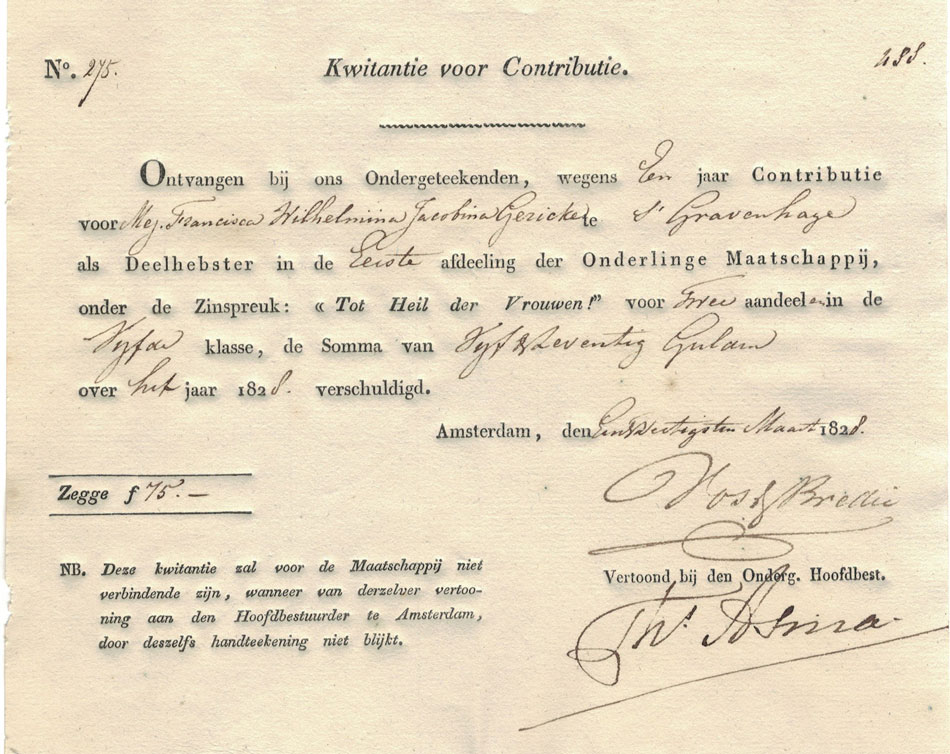 No. 275. Kwitantie voor Contributie. 488.
Ontvangen bij ons Ondergeteekenden, wegens Een jaar Contributie
voor Mej. Francisca Wilhelmina Jacobina Gericke te S' Gravenhage
als Deelhebster in de Eerste afdeeling der Onderlinge Maatschappij,
onder de Zinspreuk: « Tot Heil der Vrouwen!" voor Twee aandeelen in de
Vyfde klasse, de Somma van Vyf & Zeventig Gulden
over het jaar 1828. verschuldigd.
Amsterdam, den Een & dertigsten Maart 1828.
Zegge f 75.—
Vos & Bredie
NB. Deze kwitantie zal voor de Maatschappij niet
verbindende zijn, wanneer van derzelver vertoo-
ning aan den Hoofdbestuurder te Amsterdam,
door deszelfs handteekening niet blijkt.
Vertoond bij den Onderg. Hoofdbest.
Ths. Asma.